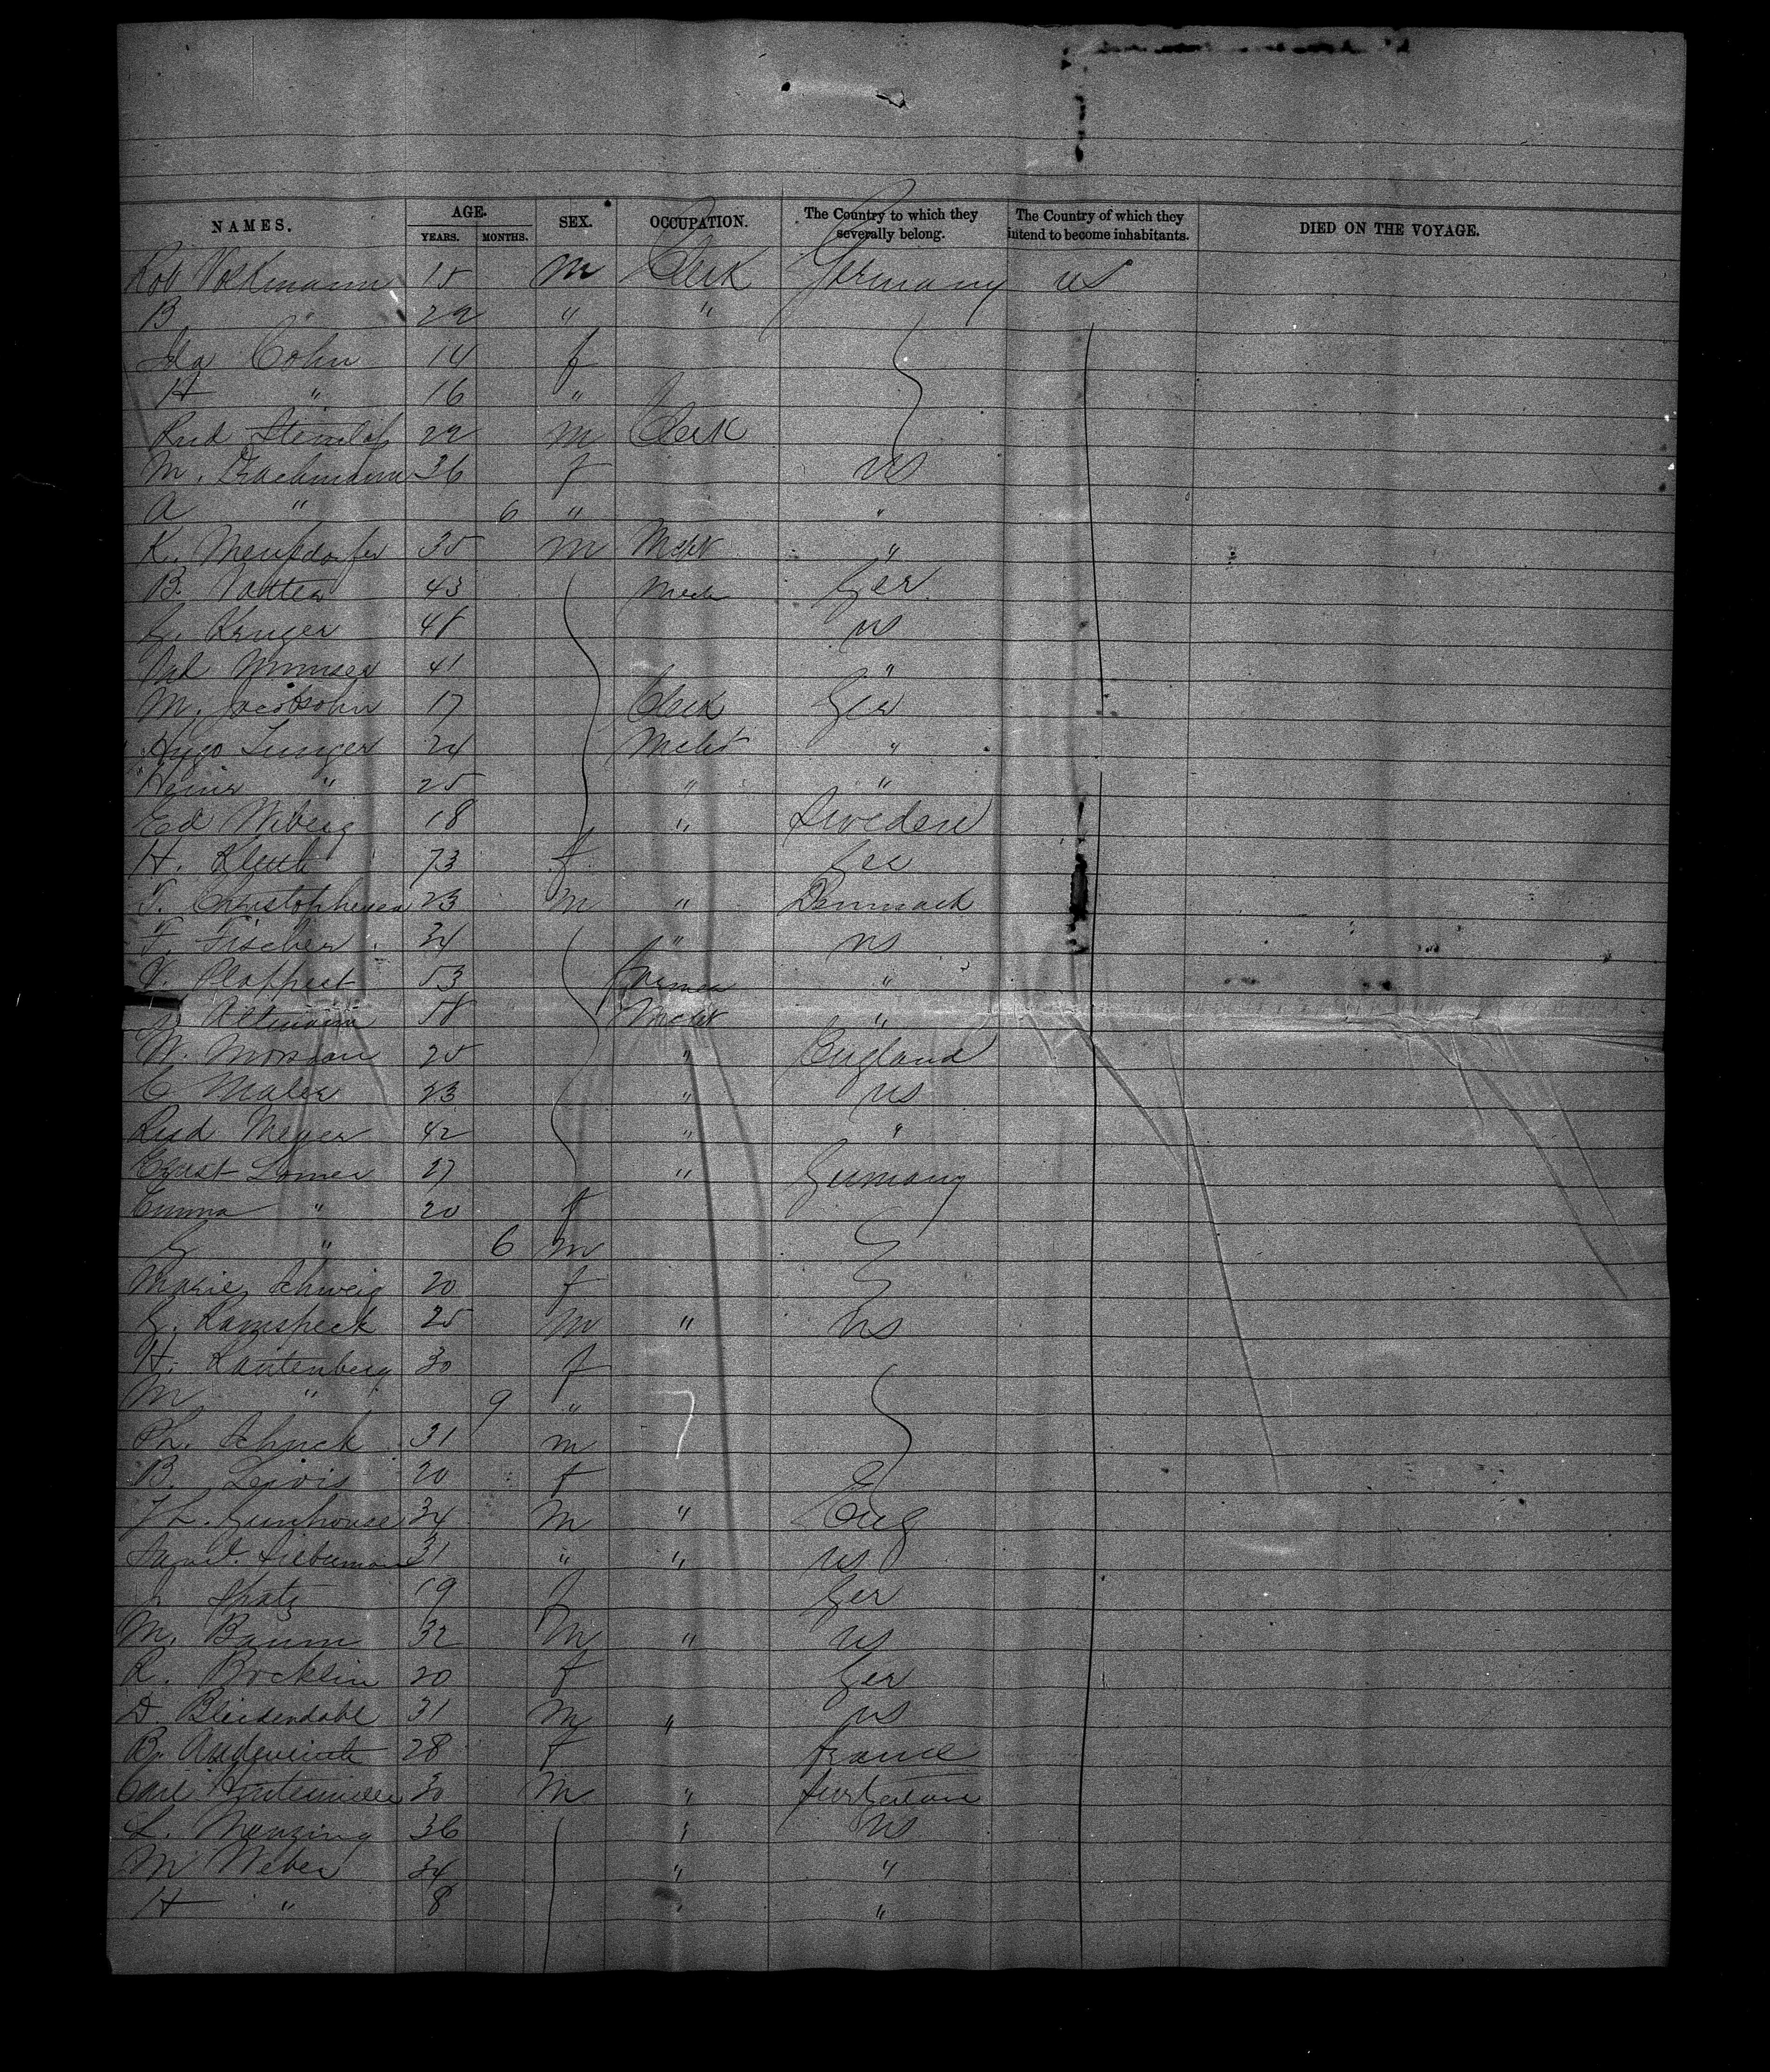 NAMES. AGE. SEX. OCCUPATION. The Country to which they severally belong. The Country of which they intend to become inhabitants. DIED ON THE VOYAGE.
YEARS. MONTHS.
Rob Volkmann 15 M Clerk Germany US
B " 22 " "
Ida Cohn 14 f
H " 16 "
Rud 22 M Clerk
M. Drachmann 36 f US
A " 6 " "
K. 35 M Mcht "
B. 43 Mech Ger
G. Kruger 48 US
41 "
M. Jacobsohn 17 Clerk Ger
Hugo Lunger 24 Mcht "
Heinr " 25 " "
Ed Wiberg 18 " Sweden
H. 73 f Ger
Christophersen 23 M " Denmark
F. Fischer 34 " US
53 Farmer "
Altmann 58 Mcht "
W. 25 " England
C Maler 23 " US
Rud Meyer 42 " "
Ernst Lomer 27 " Germany
Emma " 20 f
G " 6 M
Marie Schweig 20 f
G. Ramspeck 25 M " US
H. Lautenberg 30 f
M " 9 "
Ph. Schuck 31 M
B. Lewis 20 f
34 M " Eng
31 " " US
J. Spatz 19 f Ger
M. Baum 32 M " US
R. Bocklin 20 f Ger
D. 31 M " US
B. 28 f France
Carl 30 M " Switzerland
L. Manzing 36 " US
M Weber 34 " "
H " 8 "